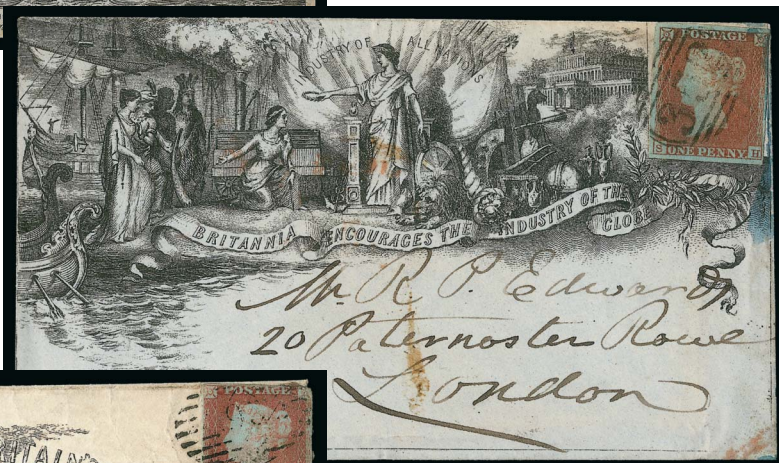 INDUSTRY OF ALL NATIONS
POSTAGE
S ONE PENNY H
BRITANNIA ENCOURAGES THE INDUSTRY OF THE GLOBE
Mr R. P. Edwards
20 Paternoster Rowe
London
POSTAGE